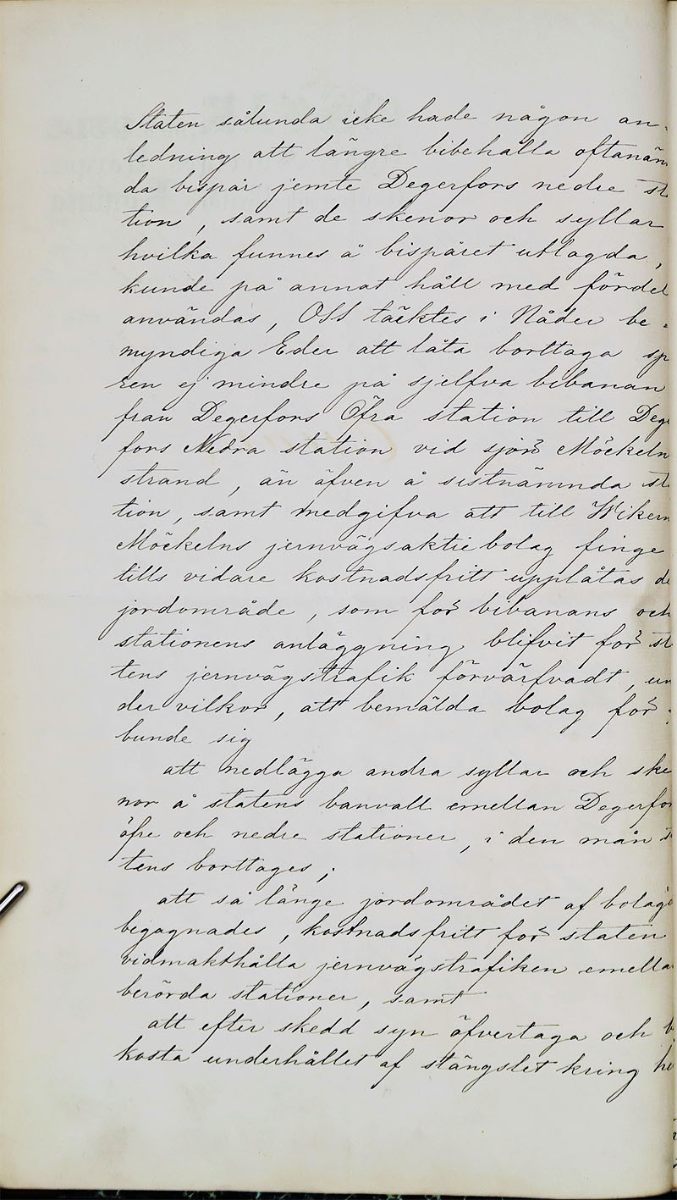 Staten sålunda icke hade någon an-
ledning att längre bibehålla oftanäm
da bispår jemte Degerfors nedre st
tion, samt de skenor och syllar
hvilka funnes å bispåret utlagda,
kunde på annat håll med fördel
användas, OSS täcktes i Nåder be-
myndiga Eder att låta borttaga sp
ren ej mindre på sjelfva bibanan
från Degerfors Öfra station till Deg
fors Nedra station vid sjön Möckeln
strand, än äfven å sistnämnda st
tion, samt medgifva att till Wikern
Möckelns jernvägsaktiebolag finge
tills vidare kostnadsfritt upplåtas de
jordområde, som för bibanans och
stationens anläggning blifvit för st
tens jernvägstrafik förvärfvadt, un
der vilkor, att bemälda bolag för
bunde sig
att nedlägga andra syllar och ske
nor å statens banvall emellan Degerfor
öfre och nedre stationer, i den mån s
tens borttages;
att så länge jordområdet af bolage
begagnades, kostnadsfritt för staten
vidmakthålla jernvägstrafiken emella
berörda stationer, samt
att efter skedd syn öfvertaga och b
kosta underhållet af stängslet kring he